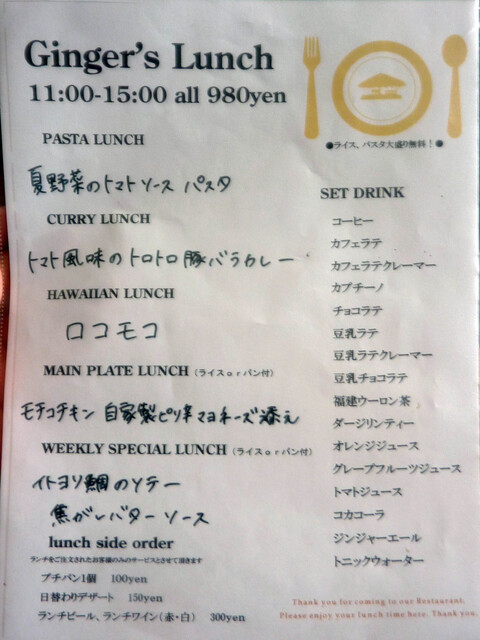 Ginger's Lunch
11:00-15:00 all 980yen
●ライス、パスタ大盛り無料！●
PASTA LUNCH
夏野菜のトマトソース パスタ
CURRY LUNCH
トマト風味のトロトロ豚バラカレー
HAWAIIAN LUNCH
ロコモコ
MAIN PLATE LUNCH（ライスorパン付）
モチコチキン 自家製ピリ辛マヨネーズ添え
WEEKLY SPECIAL LUNCH（ライスorパン付）
イトヨリ鯛のソテー
焦がしバターソース
lunch side order
ランチをご注文されたお客様のみのサービスとさせて頂きます
プチパン1個 100yen
日替わりデザート 150yen
ランチビール、ランチワイン（赤・白） 300yen
SET DRINK
コーヒー
カフェラテ
カフェラテクレーマー
カプチーノ
チョコラテ
豆乳ラテ
豆乳ラテクレーマー
豆乳チョコラテ
福建ウーロン茶
ダージリンティー
オレンジジュース
グレープフルーツジュース
トマトジュース
コカコーラ
ジンジャーエール
トニックウォーター
Thank you for coming to our Restaurant.
Please enjoy your lunch time here. Thank you.